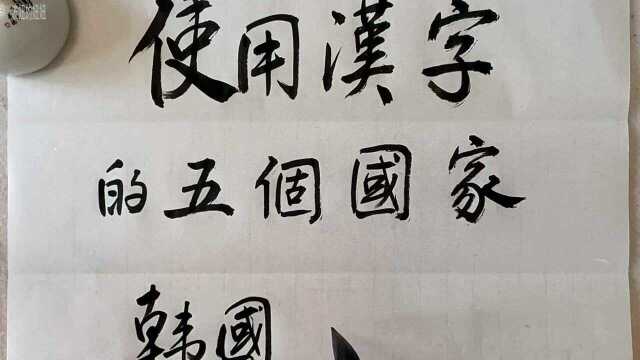 使用漢字
的五個國家
韩國